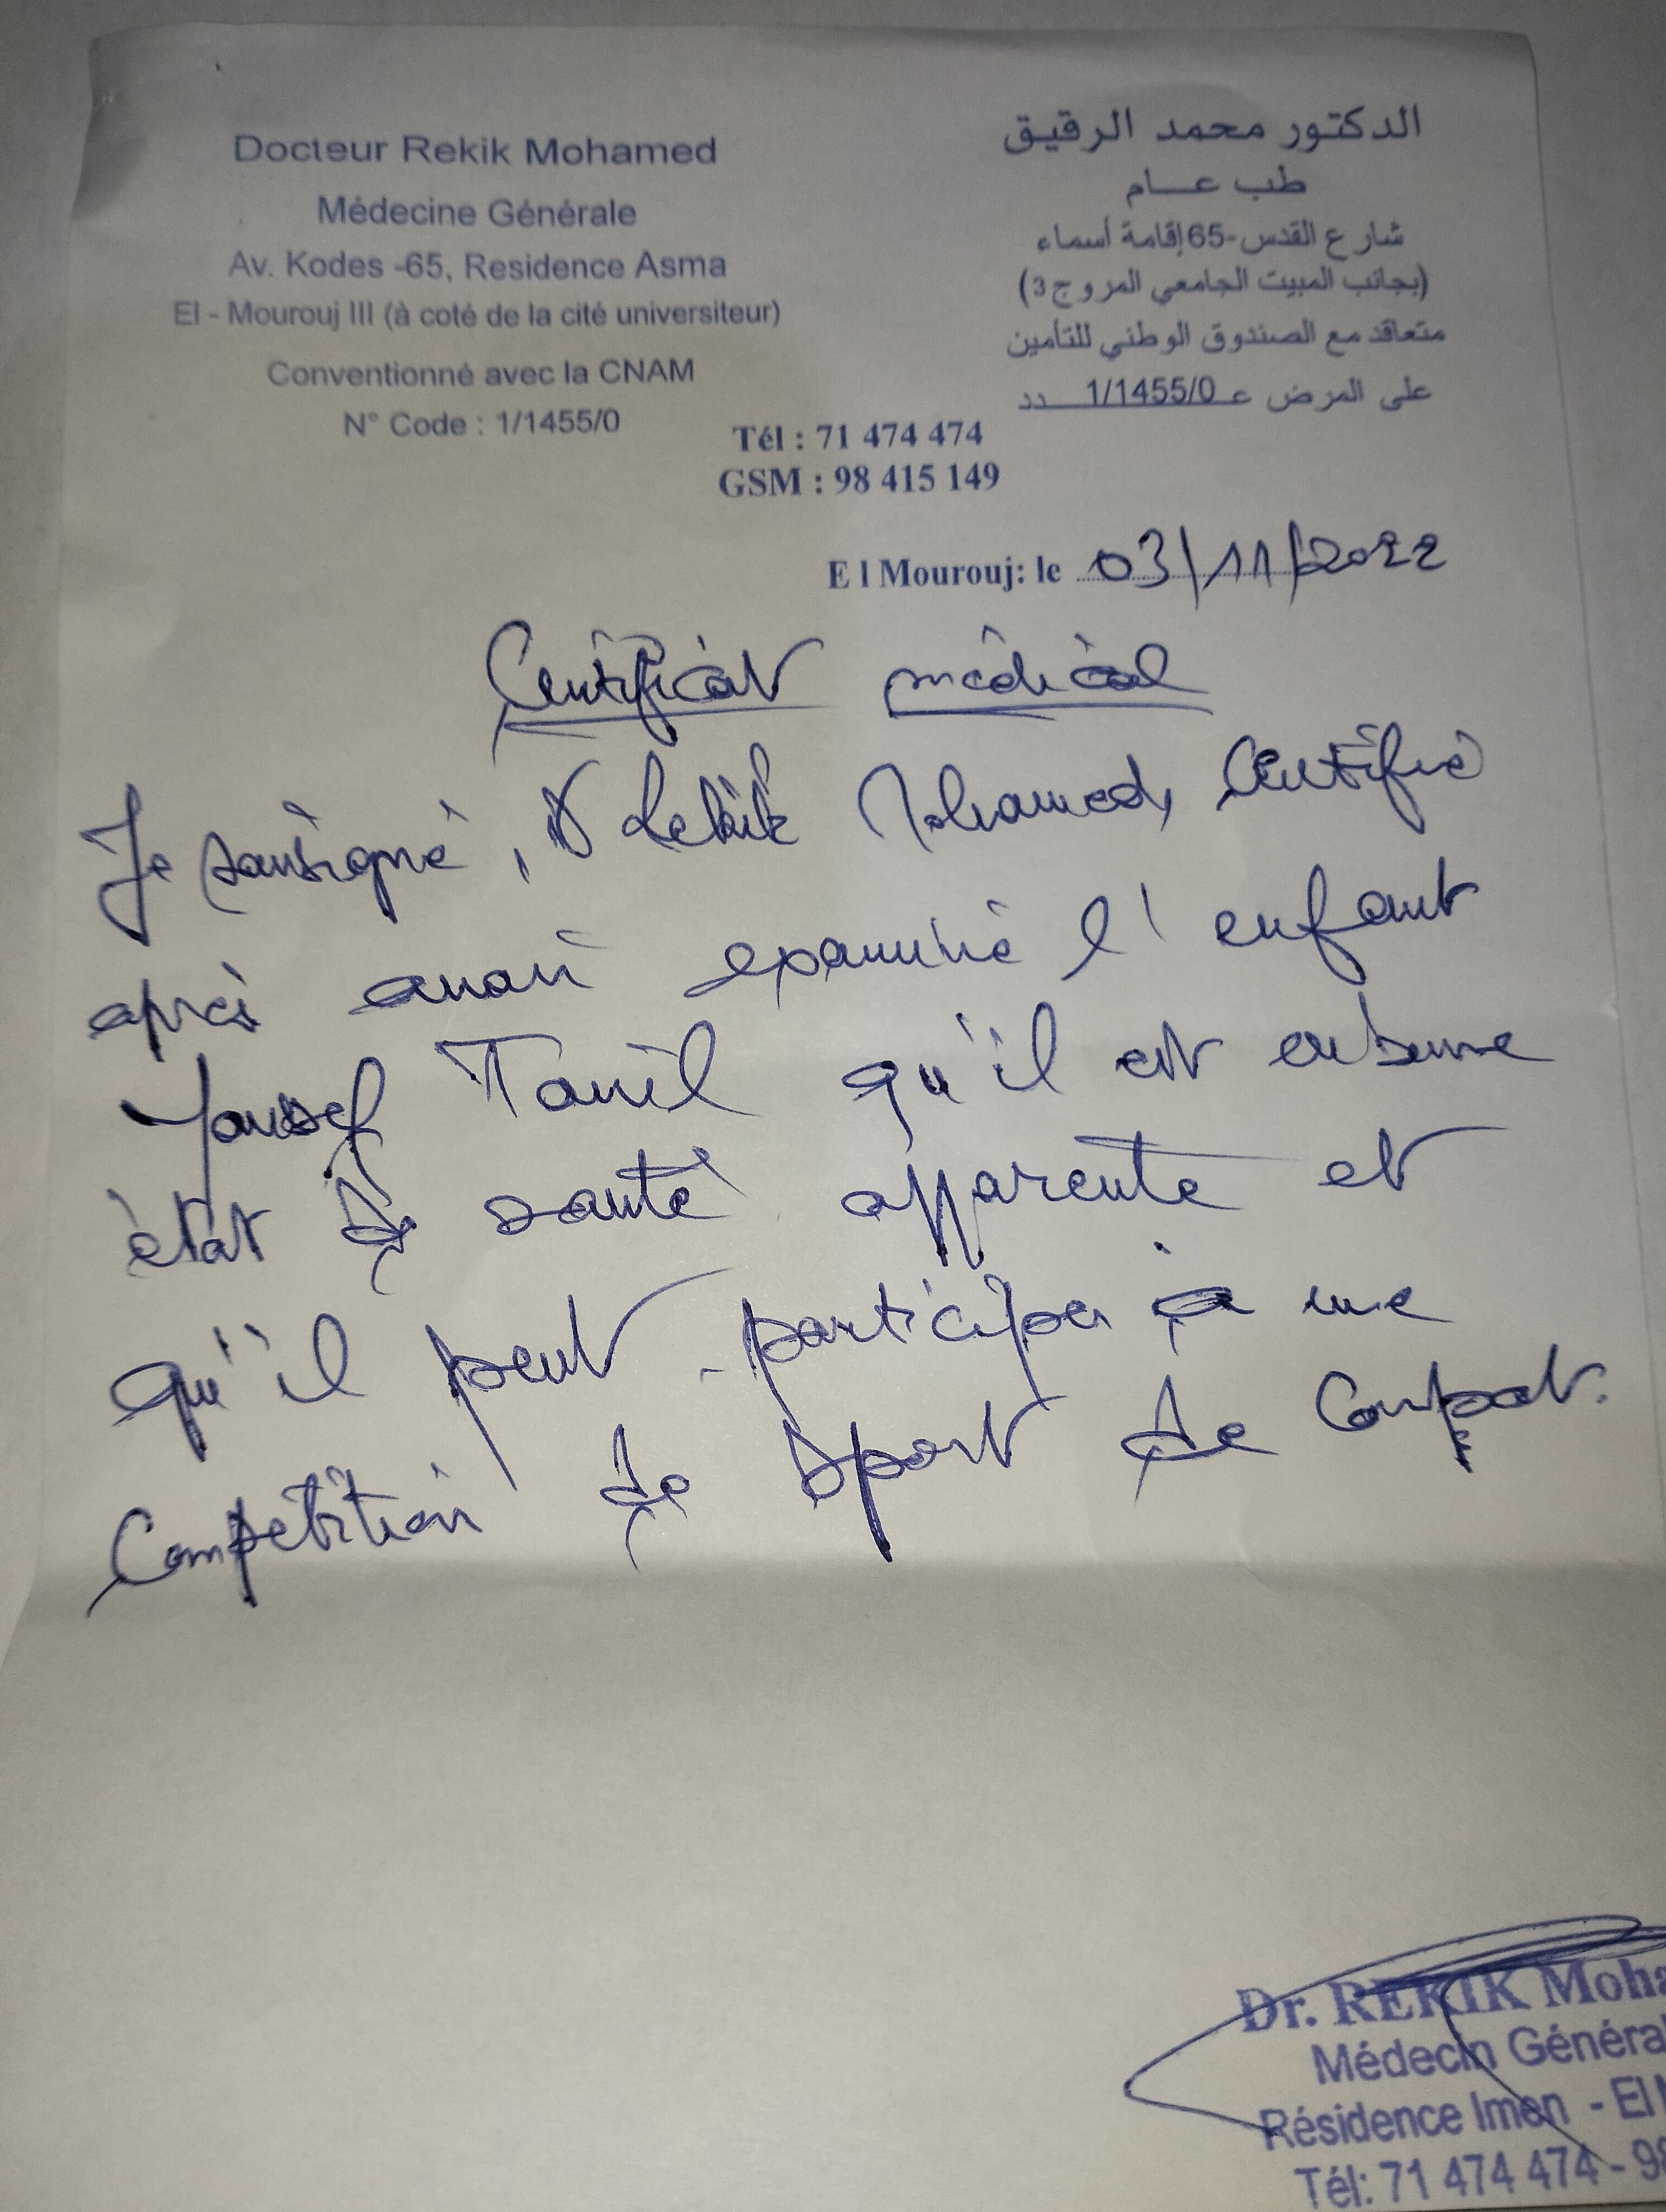 Docteur Rekik Mohamed
Médecine Générale
Av. Kodes -65, Residence Asma
El - Mourouj III (à coté de la cité universiteur)
Conventionné avec la CNAM
N° Code : 1/1455/0
الدكتور محمد الرقيق
طب عام
شارع القدس-65إقامة أسماء
(بجانب المبيت الجامعي المروج 3)
متعاقد مع الصندوق الوطني للتأمين
على المرض عـ 1/1455/0 ـدد
Tél : 71 474 474
GSM : 98 415 149
E l Mourouj: le 03/11/2022
Certificat médical
Je sousigné, Dr Rekik Mohamed, Certifie
après avoir examiné l'enfant
Youssef qu'il est en bonne
état de santé apparente et
qu'il peut participer à une
Compétition de sport de Combat.
Dr. REKIK Moha
Médecin Généra
Résidence Imen - El
Tél: 71 474 474 - 98